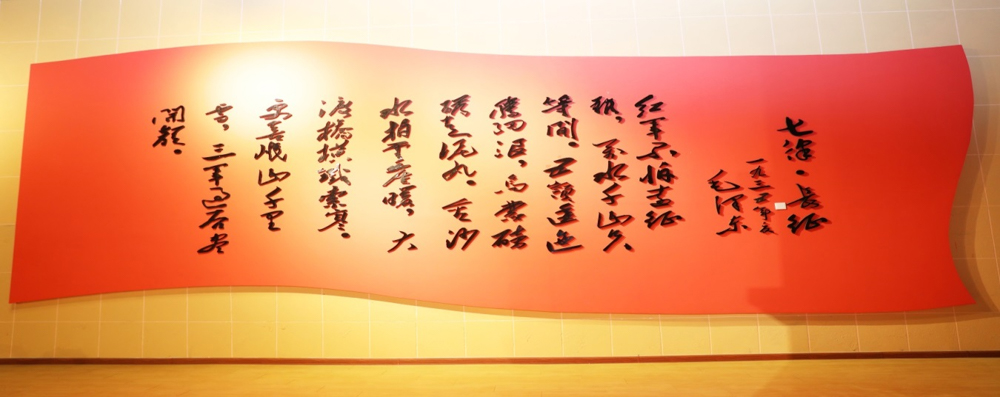 七律·長征
一九三五年十月
毛澤東
紅軍不怕遠征
難，萬水千山只
等閒。五嶺逶迤
騰細浪，烏蒙磅
礴走泥丸。金沙
水拍雲崖暖，大
渡橋橫鐵索寒。
更喜岷山千里
雪，三軍過後盡
開顏。